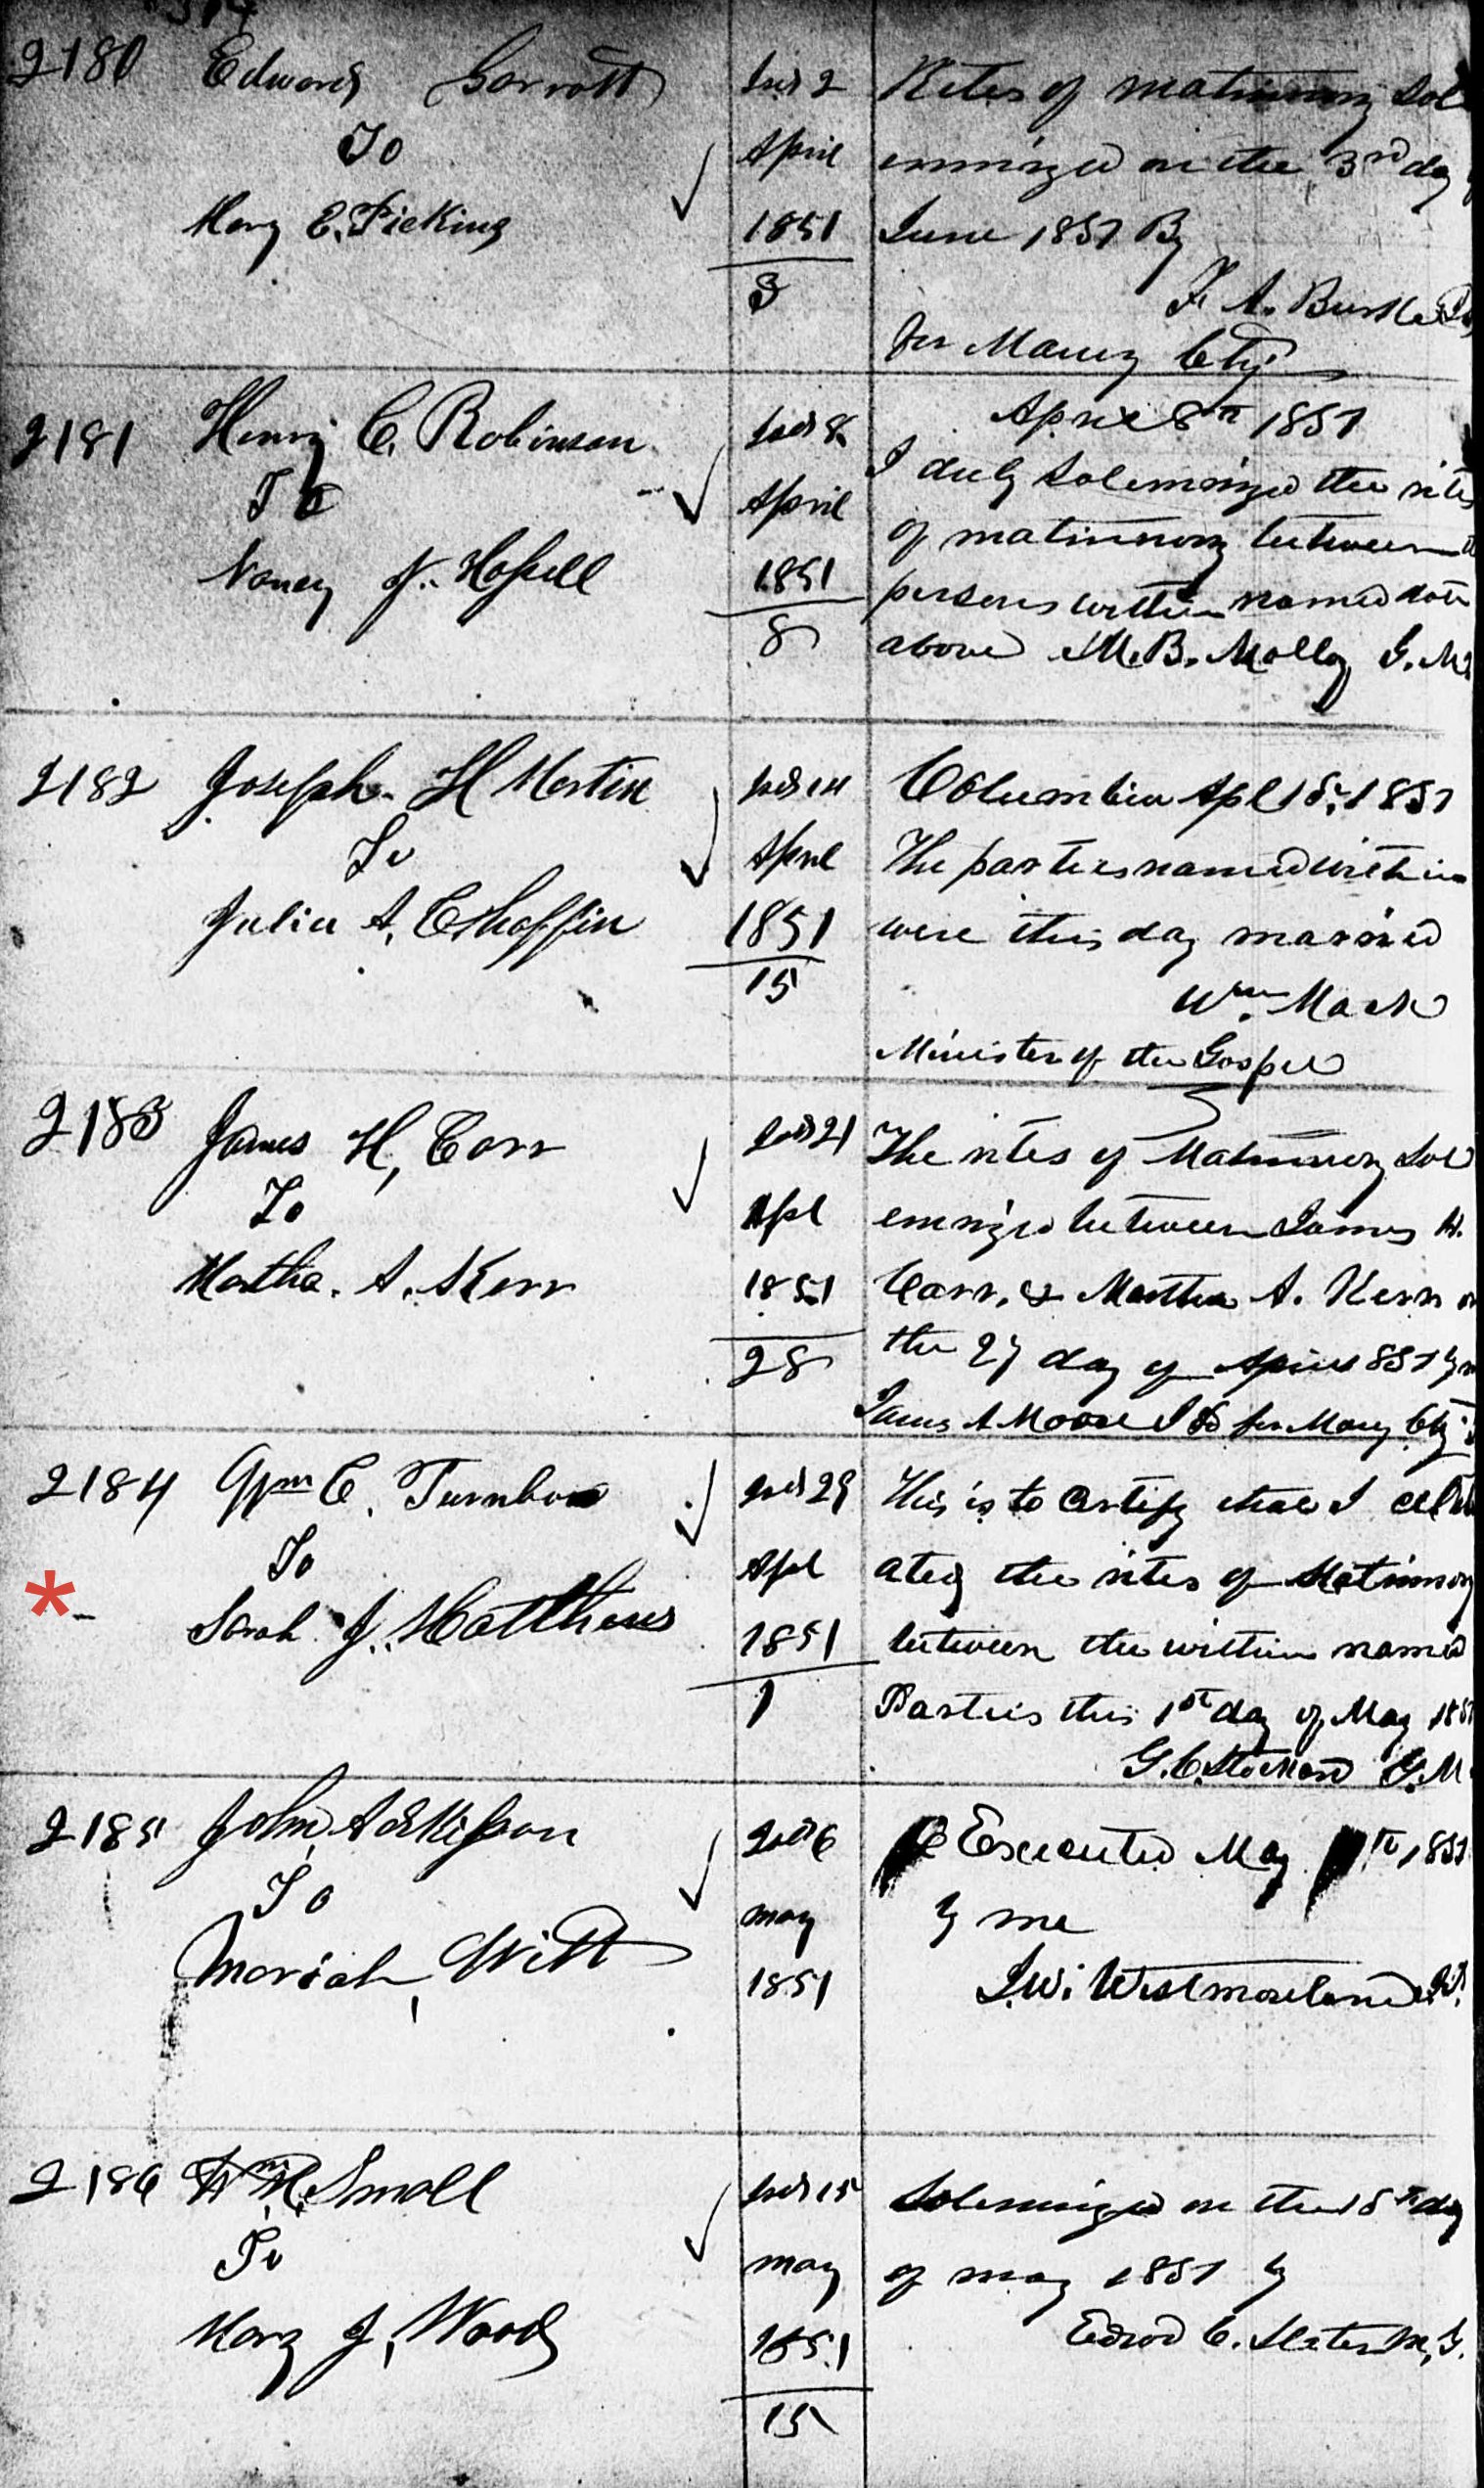 2180 Edward Garrott
To
Mary E. Ficking
Issd 2
April
1851
3
Rites of matrimony Sol
emnized on the 3rd day
June 1851 By
F. A. Burke
for Maury Cty
2181 Henry C. Robinson
To
Nancy J.
Issd 8
April
1851
8
April 8th 1851
I duly Solemnized the rites
of matrimony between
persons within named date
above M. B. Molloy G. M
2182 Joseph H Martin
To
Julia A. Chaffin
Issd 14
April
1851
15
Columbia Apl 15, 1851
The parties named within
were this day married
Wm. Mack
Minister of the Gospel
2183 James H, Carr
To
Martha. A. Kerr
Issd 21
Apl
1851
28
The rites of Matrimony Sol
emnized between James H.
Carr, & Martha A. Kerr on
the 27 day of April 1851 by m
James A Moore J P for Maury Cty
2184 Wm C. Turnbow
To
Sarah J. Matthews
Issd 29
Apl
1851
1
This is to Certify that I celebr
ated the rites of Matrimony
between the within named
Parties this 1st day of May 1851
G. C. Stockard G. M
2185 John Adkisson
To
Moriah, Witt
Issd 6
may
1851
Executed May th 1851
by me
J. W. Westmoreland J.P.
2186 Wm H. Small
To
Mary J, Woods
Issd 15
may
1851
15
Solemnized on the 15th day
of may 1851 by
Edwd C. Slater M, G.